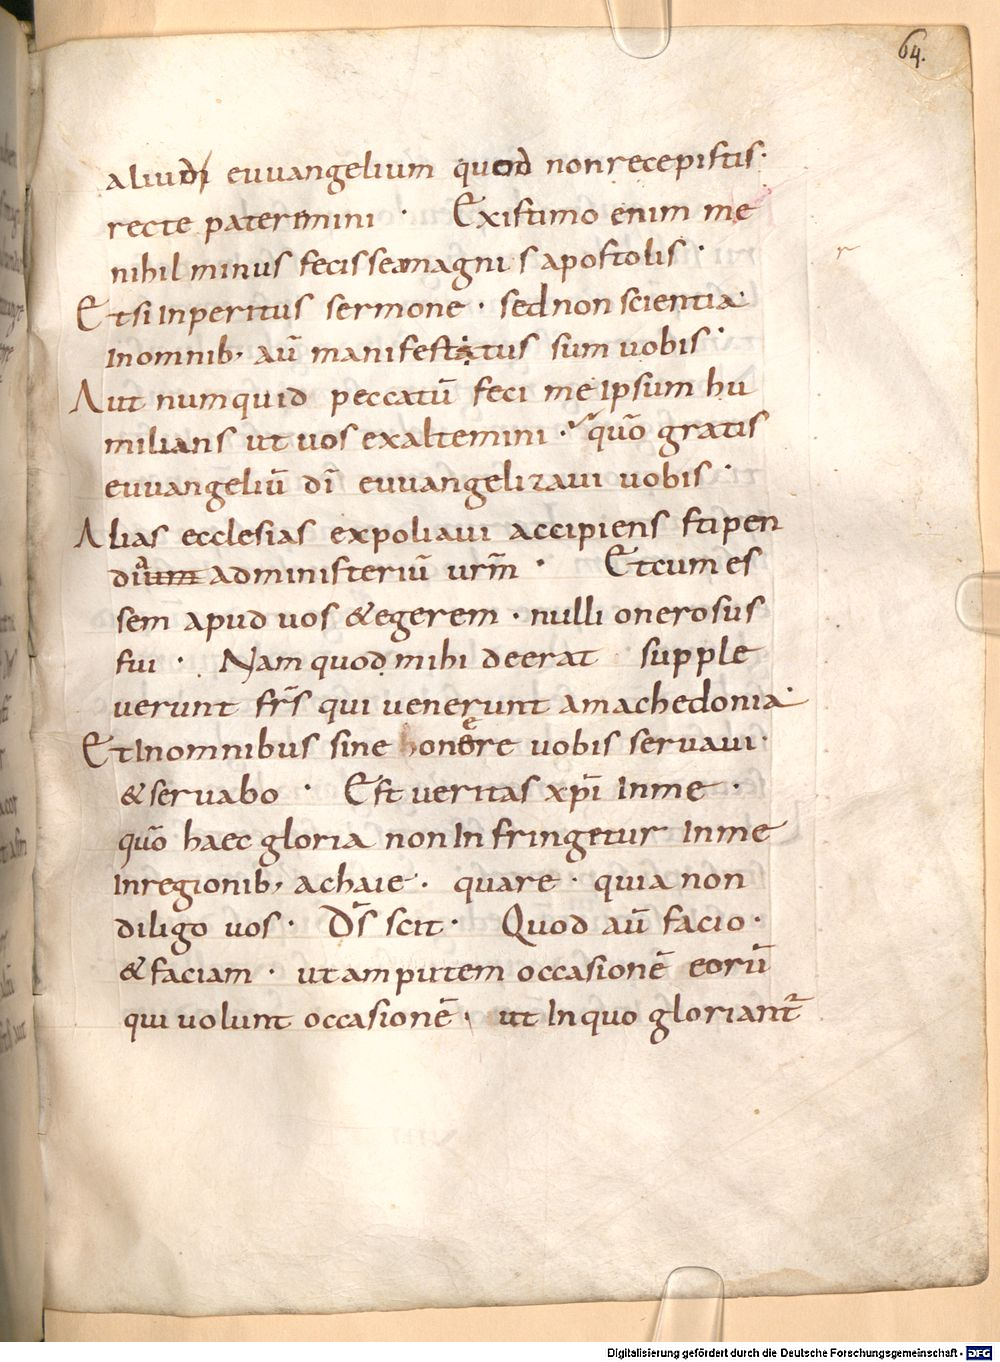 64.
aliud euuangelium quod nonrecepistis·
recte pateremini · Existimo enim me
nihil minus fecisse amagnis apostolis ·
Etsi Inperitus sermone · sed non scientia·
Inomnib; aū manifestatus sum uobis ·
Aut numquid peccatū feci me Ipsum hu
milians ut uos exaltemini · quō gratis
euuangeliū dī euuangelizaui uobis ·
Alias ecclesias expoliaui accipiens stipen
dia administeriū urm̄ · Etcum es
sem apud uos &egerem · nulli onerosus
fui · Nam quod mihi deerat supple
uerunt frs̄ qui uenerunt amachedonia·
Et Inomnibus sine onere uobis seruaui·
&seruabo · Est ueritas xp̄i Inme ·
quō haec gloria non Infringetur Inme
Inregionib; achaie · quare · quia non
diligo uos · Ds̄ scit · Quod aū facio ·
&faciam · utamputem occasionē eorū
qui uolunt occasionē · ut Inquo gloriant̄
r
Digitalisierung gefördert durch die Deutsche Forschungsgemeinschaft - DFG